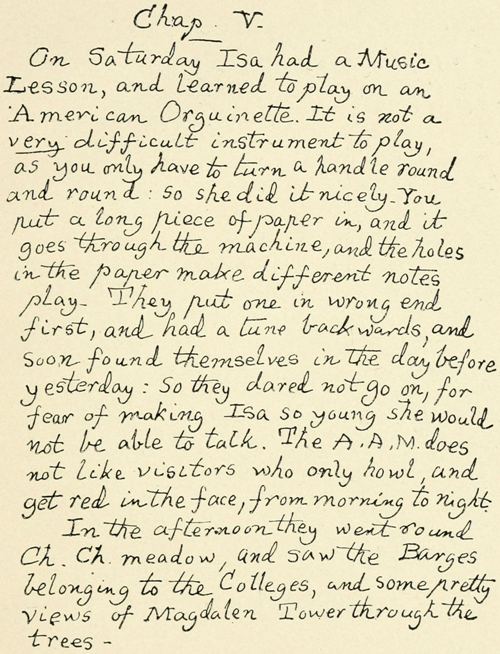 Chap. V.
On Saturday Isa had a Music
Lesson, and learned to play on an
American Orguinette. It is not a
very difficult instrument to play,
as you only have to turn a handle round
and round: so she did it nicely. You
put a long piece of paper in, and it
goes through the machine, and the holes
in the paper make different notes
play. They put one in wrong end
first, and had a tune backwards, and
soon found themselves in the day before
yesterday: So they dared not go on, for
fear of making Isa so young she would
not be able to talk. The A.A.M. does
not like visitors who only howl, and
get red in the face, from morning to night.
In the afternoon they went round
Ch. Ch. meadow, and saw the Barges
belonging to the Colleges, and some pretty
views of Magdalen Tower through the
trees -